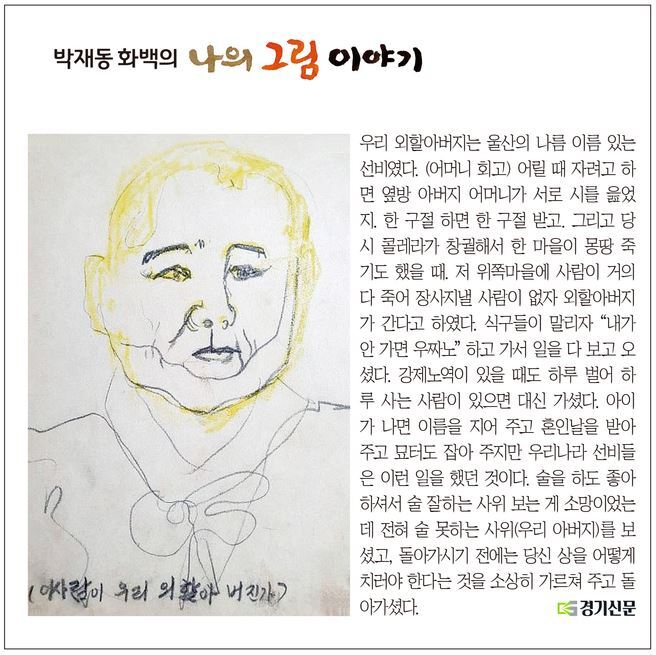 박재동 화백의 나의 그림 이야기
우리 외할아버지는 울산의 나름 이름 있는
선비였다. (어머니 회고) 어릴 때 자려고 하
면 옆방 아버지 어머니가 서로 시를 읊었
지. 한 구절 하면 한 구절 받고. 그리고 당
시 콜레라가 창궐해서 한 마을이 몽땅 죽
기도 했을 때. 저 위쪽마을에 사람이 거의
다 죽어 장사지낼 사람이 없자 외할아버지
가 간다고 하였다. 식구들이 말리자 “내가
안 가면 우짜노” 하고 가서 일을 다 보고 오
셨다. 강제노역이 있을 때도 하루 벌어 하
루 사는 사람이 있으면 대신 가셨다. 아이
가 나면 이름을 지어 주고 혼인날을 받아
주고 묘터도 잡아 주지만 우리나라 선비들
은 이런 일을 했던 것이다. 술을 하도 좋아
하셔서 술 잘하는 사위 보는 게 소망이었는
데 전혀 술 못하는 사위(우리 아버지)를 보
셨고, 돌아가시기 전에는 당신 상을 어떻게
치러야 한다는 것을 소상히 가르쳐 주고 돌
아가셨다.
경기신문
(이사람이 우리 외할아버진가?